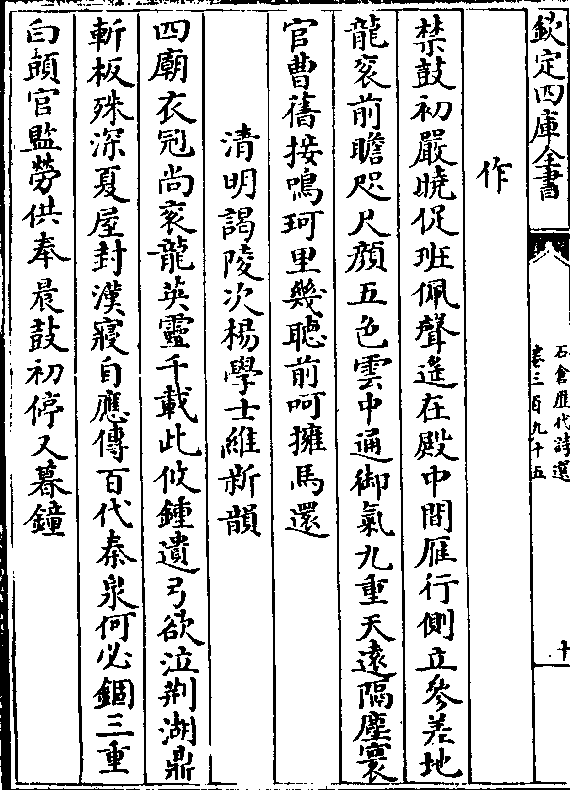 欽定四庫全書
石倉歷代詩選
卷三百九十五
十
作
禁鼓初嚴曉促班佩聲遙在殿中間雁行側立參差地
龍衮前瞻咫尺顔五色雲中通御氣九重天遠隔塵寰
官曹舊接鳴珂里幾聽前呵擁馬還
清明謁陵次楊學士維新韻
四廟衣冠尚衮龍英靈千載此攸鍾遺弓欲泣荆湖鼎
斬板殊深夏屋封漢寢自應傳百代秦泉何必錮三重
白頭官監勞供奉晨鼓初停又暮鐘